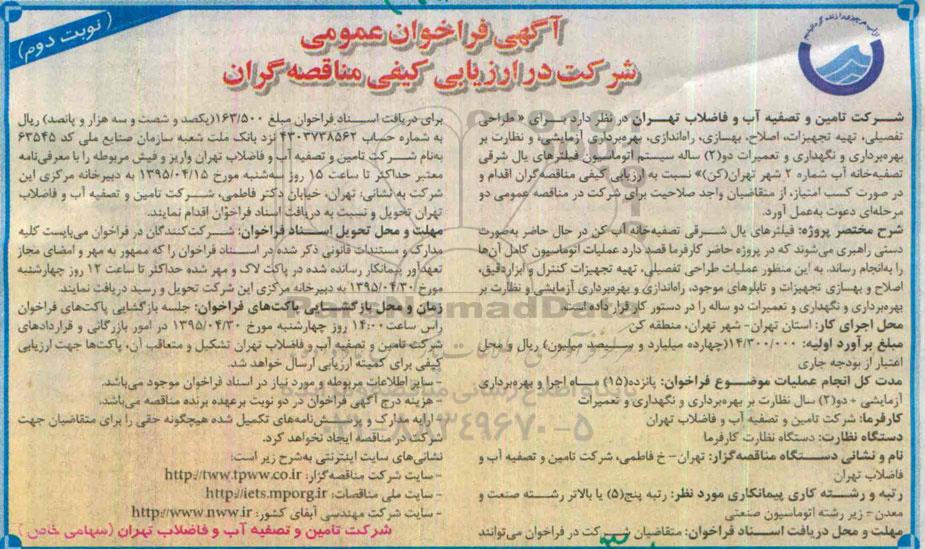 ( نوبت دوم )
آگهی فراخوان عمومی
شرکت در ارزیابی کیفی مناقصه گران
شرکت تامین و تصفیه آب و فاضلاب تهران در نظر دارد برای « طراحی
تفصیلی، تهیه تجهیزات، اصلاح، بهسازی، راه‌اندازی، بهره‌برداری آزمایشی، و نظارت بر
بهره‌برداری و نگهداری و تعمیرات دو(۲) ساله سیستم اتوماسیون فیلترهای بال شرقی
تصفیه‌خانه آب شماره ۲ شهر تهران(کن)» نسبت به ارزیابی کیفی مناقصه‌گران اقدام و
در صورت کسب امتیاز، از متقاضیان واجد صلاحیت برای شرکت در مناقصه عمومی دو
مرحله‌ای دعوت به‌عمل آورد.
شرح مختصر پروژه: فیلترهای بال شرقی تصفیه‌خانه آب کن در حال حاضر به‌صورت
دستی راهبری می‌شوند که در پروژه حاضر کارفرما قصد دارد عملیات اتوماسیون کامل آن‌ها
را به‌انجام رساند. به این منظور عملیات طراحی تفصیلی، تهیه تجهیزات کنترل و ابزاردقیق،
اصلاح و بهسازی تجهیزات و تابلوهای موجود، راه‌اندازی و بهره‌برداری آزمایشی و نظارت بر
بهره‌برداری و نگهداری و تعمیرات دو ساله را در دستور کار قرار داده است.
محل اجرای کار: استان تهران- شهر تهران، منطقه کن
مبلغ برآورد اولیه: ۱۴/۳۰۰/۰۰۰(چهارده میلیارد و سیصد میلیون) ریال و محل
اعتبار از بودجه جاری
مدت کل انجام عملیات موضوع فراخوان: پانزده(۱۵) ماه اجرا و بهره‌برداری
آزمایشی + دو(۲) سال نظارت بر بهره‌برداری و نگهداری و تعمیرات
کارفرما: شرکت تامین و تصفیه آب و فاضلاب تهران
دستگاه نظارت: دستگاه نظارت کارفرما
نام و نشانی دستگاه مناقصه‌گزار: تهران- خ فاطمی، شرکت تامین و تصفیه آب و
فاضلاب تهران
رتبه و رشته کاری پیمانکاری مورد نظر: رتبه پنج(۵) یا بالاتر رشته صنعت و
معدن- زیر رشته اتوماسیون صنعتی
مهلت و محل دریافت اسناد فراخوان: متقاضیان شرکت در فراخوان می‌توانند
برای دریافت اسناد فراخوان مبلغ ۱۶۳/۵۰۰(یکصد و شصت و سه هزار و پانصد) ریال
به شماره حساب ۴۳۰۳۷۳۸۵۶۲ نزد بانک ملت شعبه سازمان صنایع ملی کد ۶۳۵۴۵
به‌نام شرکت تامین و تصفیه آب و فاضلاب تهران واریز و فیش مربوطه را با معرفی‌نامه
معتبر حداکثر تا ساعت ۱۵ روز سه‌شنبه مورخ ۱۳۹۵/۰۴/۱۵ به دبیرخانه مرکزی این
شرکت به نشانی: تهران، خیابان دکتر فاطمی، شرکت تامین و تصفیه آب و فاضلاب
تهران تحویل و نسبت به دریافت اسناد فراخوان اقدام نمایند.
مهلت و محل تحویل اسناد فراخوان: شرکت‌کنندگان در فراخوان می‌بایست کلیه
مدارک و مستندات قانونی ذکر شده در اسناد فراخوان را که ممهور به مهر و امضای مجاز
تعهدآور پیمانکار رسانده شده در پاکت لاک و مهر شده حداکثر تا ساعت ۱۲ روز چهارشنبه
مورخ ۱۳۹۵/۰۴/۳۰ به دبیرخانه مرکزی این شرکت تحویل و رسید دریافت نمایند.
زمان و محل بازگشایی پاکت‌های فراخوان: جلسه بازگشایی پاکت‌های فراخوان
راس ساعت ۱۴:۰۰ روز چهارشنبه مورخ ۱۳۹۵/۰۴/۳۰ در امور بازرگانی و قراردادهای
شرکت تامین و تصفیه آب و فاضلاب تهران تشکیل و متعاقب آن، پاکت‌ها جهت ارزیابی
کیفی برای کمیته ارزیابی ارسال خواهد شد.
- سایر اطلاعات مربوطه و مورد نیاز در اسناد فراخوان موجود می‌باشد.
- هزینه درج آگهی فراخوان در دو نوبت برعهده برنده مناقصه می‌باشد.
- ارایه مدارک و پرسش‌نامه‌های تکمیل شده هیچگونه حقی را برای متقاضیان جهت
شرکت در مناقصه ایجاد نخواهد کرد.
نشانی‌های سایت اینترنتی به‌شرح زیر است:
- سایت شرکت مناقصه‌گزار: http://tww.tpww.co.ir
- سایت ملی مناقصات: http://iets.mporg.ir
- سایت شرکت مهندسی آبفای کشور: http://www.nww.ir
شرکت تامین و تصفیه آب و فاضلاب تهران (سهامی خاص )
ParsNamadData
۰۲۱-۸۸۳۴۹۶۷۰-۵